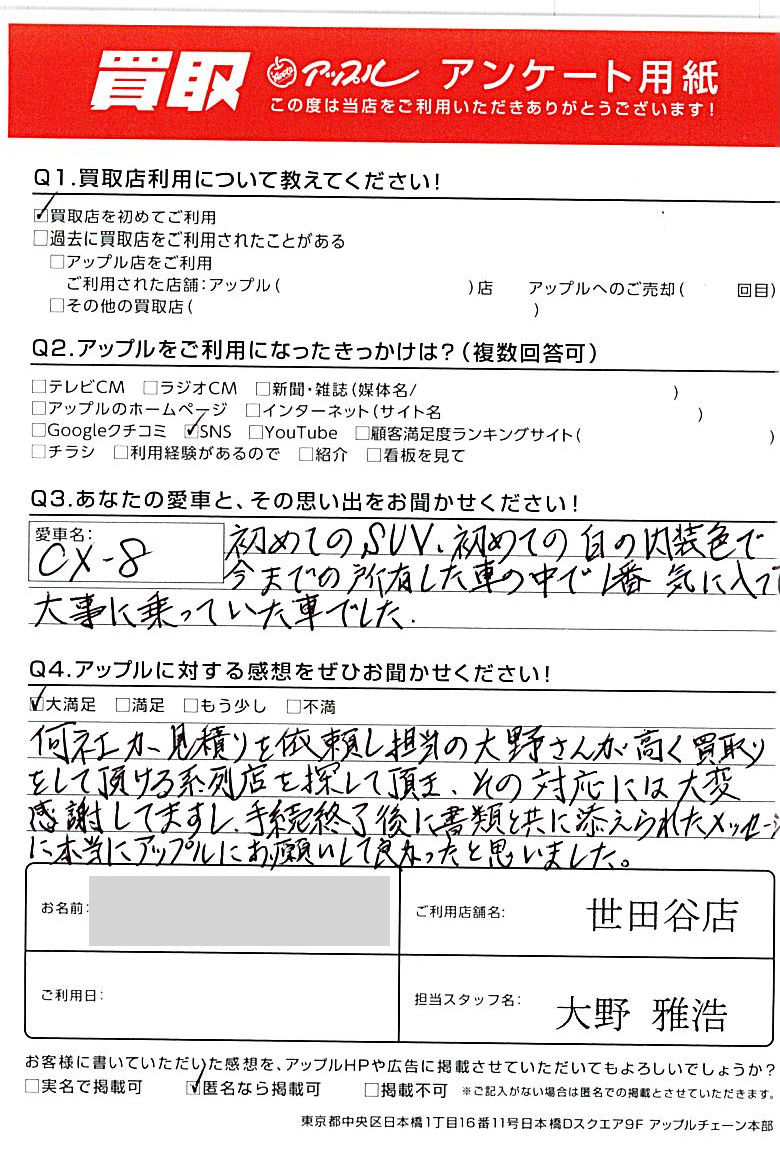 買取 Apple アップル アンケート用紙
この度は当店をご利用いただきありがとうございます!
Q1.買取店利用について教えてください!
☑買取店を初めてご利用
□過去に買取店をご利用されたことがある
□アップル店をご利用
ご利用された店舗:アップル( )店 アップルへのご売却( 回目)
□その他の買取店( )
Q2.アップルをご利用になったきっかけは?(複数回答可)
□テレビCM □ラジオCM □新聞・雑誌(媒体名/ )
□アップルのホームページ □インターネット(サイト名 )
□Googleクチコミ ☑SNS □YouTube □顧客満足度ランキングサイト( )
□チラシ □利用経験があるので □紹介 □看板を見て
Q3.あなたの愛車と、その思い出をお聞かせください!
愛車名:
CX-8
初めてのSUV、初めての白の内装色で
今までの所有した車の中で1番気に入って
大事に乗っていた車でした.
Q4.アップルに対する感想をぜひお聞かせください!
☑大満足 □満足 □もう少し □不満
何社か見積りを依頼し担当の大野さんが高く買取り
をして頂ける系列店を探して頂き、その対応には大変
感謝してますし、手続終了後に書類と共に添えられたメッセージ
に本当にアップルにお願いして良かったと思いました。
お名前: ご利用店舗名: 世田谷店
ご利用日: 担当スタッフ名: 大野 雅浩
お客様に書いていただいた感想を、アップルHPや広告に掲載させていただいてもよろしいでしょうか?
□実名で掲載可 ☑匿名なら掲載可 □掲載不可 ※ご記入がない場合は匿名での掲載とさせていただきます。
東京都中央区日本橋1丁目16番11号日本橋Dスクエア9F アップルチェーン本部